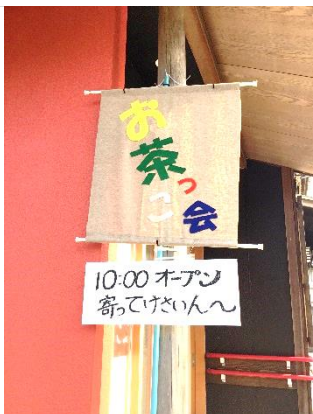 お茶っこ会
10:00 オープン
寄ってけさいん〜